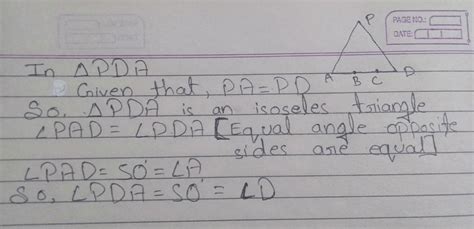 PAGE NO.:
DATE:
P
A B C D
In △PDA
Given that, PA=PD
So, △PDA is an isoseles triangle
∠PAD = ∠PDA [Equal angle opposite
sides are equal]
∠PAD = 50° = ∠A
So, ∠PDA = 50° = ∠D